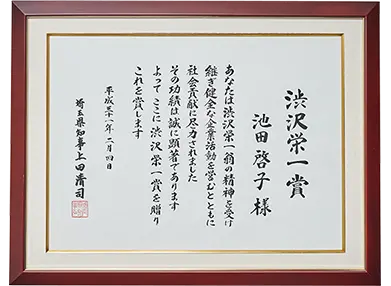 渋沢栄一賞
池田啓子様
あなたは渋沢栄一翁の精神を受け
継ぎ健全な企業活動を営むとともに
社会貢献に尽力されました
その功績は誠に顕著であります
よってここに渋沢栄一賞を贈り
これを賞します
平成三十一年二月四日
埼玉県知事上田清司